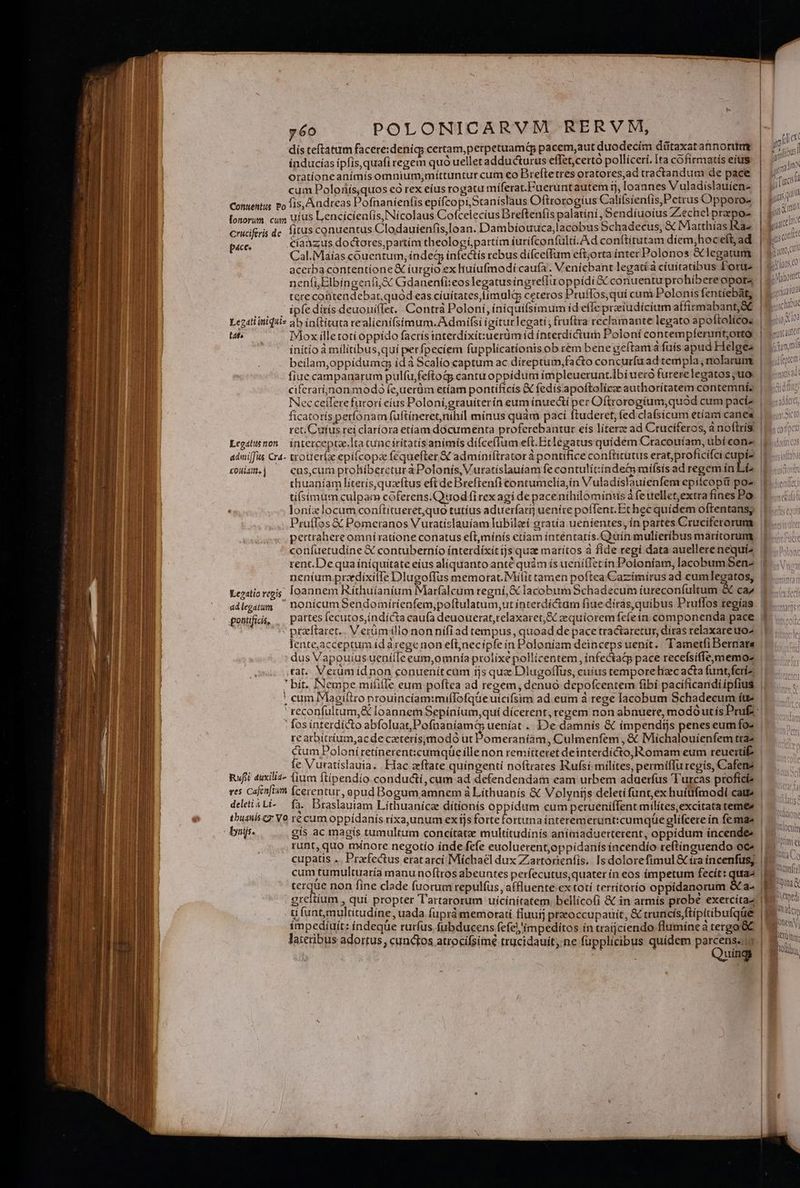 760 POLONICARVM RERVM,
dis testatum facere: denique certam, perpetuamque pacem, aut duodecim dũtaxat annorum
inducias ipsis, quasi regem quò uellet adducturus esset, certò polliceri. Ita cõfirmatis eius
oratione animis omnium, mittuntur cum eo Brestetres oratores, ad tractandum de pace
cum Polonis, quos eò rex eius rogatu miserat. Fuerunt autem ij, Ioannes Vuladislauien-
Conuentus Po sis, Andreas Posnaniensis episcopi, Stanislaus Ostrorogius Calissiensis, Petrus Opporo-
lonorum cum uius Lencicienßs, Nicolaus Coscelecius Brestensis palatini, Sendiuoius Zechel præpo-
Cruciferis de situs conuentus Clodauiensis, Ioan. Dambiouuca, Iacobus Schadecus, & Matthias Ra-
pace. cianzus doctores, partim theologi, partim iurisconsulti. Ad constitutam diem, hoc est, ad
Cal. Maias cõuentum, indeque infectis rebus discessum est, orta inter Polonos & legatum
acerba contentione & iurgio ex huiusmodi causa. Veniebant legati à ciuitatibus Toru-
nensi, Elbingensi, & Gdanensi: eos legatus ingressu oppidi & conuentu prohibere opor-
tere contendebat, quòd eas ciuitates, simulque ceteros Prussos, qui cum Polonis sentiebāt,
ipse diris deuouisset. Contrà Poloni, iniquissimum id esse præiudicium affirmabant, &
Legati iniqui- ab instituta re alienissimum. Admissi igitur legati, frustra reclamante legato apostolico.
tas. Mox ille toti oppido sacris interdixit: uerùm id interdictum Poloni contempserunt, orto
initio à militibus, qui per speciem supplicationis ob rem bene gestam à suis apud Helges
beilam, oppidumque id à Scalio captum ac direptum, facto concursu ad templa, nolarum
siue campanarum pulsu, festoque cantu oppidum impleuerunt. Ibi uerò furere legatos, uo
ciferari, non modò se, uerùm etiam pontificis & sedis apostolicæ authoritatem contemni.
Nec cessere furori eius Poloni, grauiter in eum inuecti per Ostrorogium, quòd cum paci-
ficatoris personam sustineret, nihil minus quàm paci studeret, sed classicum etiam cane-
ret. Cuius rei clariora etiam documenta proferebantur eis literæ ad Cruciferos, à nostris
Legatus non interceptæ. Ita tunc irritatis animis discessum est. Et legatus quidem Cracouiam, ubi con-
admissus Cra- trouersiæ episcopæ sequester & administrator à pontifice constitutus erat, proficisci cupi-
couiam. cus, cum prohiberetur à Polonis, Vuratislauiam se contulit: indeque missis ad regem in Li-
thuaniam literis, quæstus est de Brestensi contumelia, in Vuladislauiensem episcopũ po-
tissimum culpam cõferens. Quòd si rex agi de pace nihilominus à se uellet, extra fines Po
loniæ locum constitueret, quo tutius aduersarij uenire possent. Et hec quidem ostentans,
Prussos & Pomeranos Vuratislauiam Iubilæi gratia uenientes, in partes Cruciferorum
pertrahere omni ratione conatus est, minis etiam intentatis. Quin mulieribus maritorum
consuetudine & contubernio interdixit ijs quæ maritos à fide regi data auellere nequi-
rent. De qua iniquitate eius aliquanto antè quàm is uenisset in Poloniam, Iacobum Sen-
neniŭm prædixisse Dlugossus memorat. Misit tamen postea Cazimirus ad eum legatos,
Legatio regis Ioannem Rithuianium Marsalcum regni, & Iacobum Schadecum iureconsultum & ca-
ad legatum nonicum Sendomiriensem, postulatum, ut interdictum siue diras, quibus Prussos regias
pontificis, partes secutos, indicta causa deuouerat, relaxaret, & æquiorem se se in componenda pace
præstaret. Verùm illo non nisi ad tempus, quoad de pace tractaretur, diras relaxare uo-
lente, acceptum id à rege non est, nec ipse in Poloniam deinceps uenit. Tametsi Bernar-
dus Vapouius uenisse eum, omnia prolixè pollicentem, infectaque pace recessisse, memo-
rat. Verùm id non conuenit cum ijs quæ Dlugossus, cuius tempore hæc acta sunt, scri-
bit. Nempe misisse eum postea ad regem, denuo deposcentem sibi pacificandi ipsius
cum Magistro prouinciam: missosque uicissim ad eum à rege Iacobum Schadecum iu-
reconsultum, & Ioannem Sepinium, qui dicerent, regem non abnuere, modò utis Prus-
sos interdicto absoluat, Posnaniamque ueniat. De damnis & impendijs penes eum fo-
re arbitrium, ac de cæteris, modò ut Pomeraniam, Culmensem, & Michalouiensem tra-
ctum Poloni retinerent: cumque ille non remitteret de interdicto, Romam eum reuertis-
se Vuratislauia. Hac æstate quingenti nostrates Russi milites, permissu regis, Cafen-
Rusti auxilia- sium stipendio conducti, cum ad defendendam eam urbem aduersus Turcas profici-
res Cafensium scerentur, apud Bogum amnem à Lithuanis & Volynijs deleti sunt, ex huiusmodi cau-
deleti à Li- sa. Braslauiam Lithuanicæ ditionis oppidum cum peruenissent milites, excitata teme-
thuanis & Vo re cum oppidanis rixa, unum ex ijs forte fortuna interemerunt: cumque gliscere in se ma-
lynijs. gis ac magis tumultum concitatæ multitudinis animaduerterent, oppidum incende-
runt, quo minore negotio inde sese euoluerent, oppidanis incendio restinguendo oc-
cupatis. Præfectus erat arci Michaël dux Zartoriensis. Is dolore simul & ira incensus,
cum tumultuaria manu nostros abeuntes persecutus, quater in eos impetum fecit: qua-
terque non sine clade suorum repulsus, affluente ex toti territorio oppidanorum & a-
grestium, qui propter Tartarorum uicinitatem bellicosi & in armis probè exercita-
ti sunt, multitudine, uada suprà memorati fluuij præoccupauit, & truncis, stipitibusque
impediuit: indeque rursus subducens sese, impeditos in traijciendo flumine à tergo &
lateribus adortus, cunctos atrocissimè trucidauit, ne supplicibus quidem parcens.
Quinque